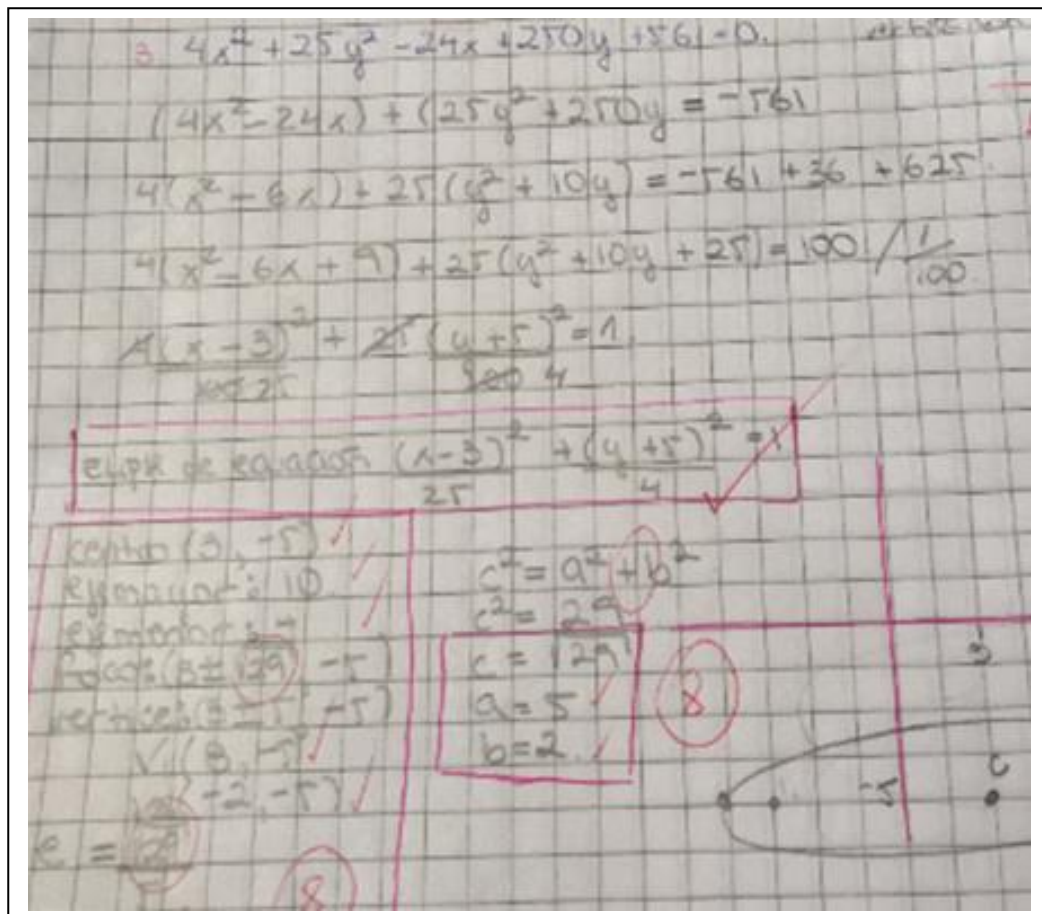 3 4x² + 25y² - 24x + 250y + 561 = 0.
(4x² - 24x) + (25y² + 250y = -561
4(x² - 6x) + 25(y² + 10y) = -561 + 36 + 625
4(x² - 6x + 9) + 25(y² + 10y + 25) = 100 / 1/100
4(x - 3)²/100 25 + 25(y + 5)²/100 4 = 1
elipse de ecuación (x-3)²/25 + (y+5)²/4 = 1
centro (3, -5)
eje mayor: 10
eje menor: 4
focos: (3 ± √29, -5)
vertices (3 ± 5, -5)
V1(8, -5)
(-2, -5)
e = √29
8
c² = a² + b²
c² = 29
c = √29
a = 5
b = 2
8
3
-5
C